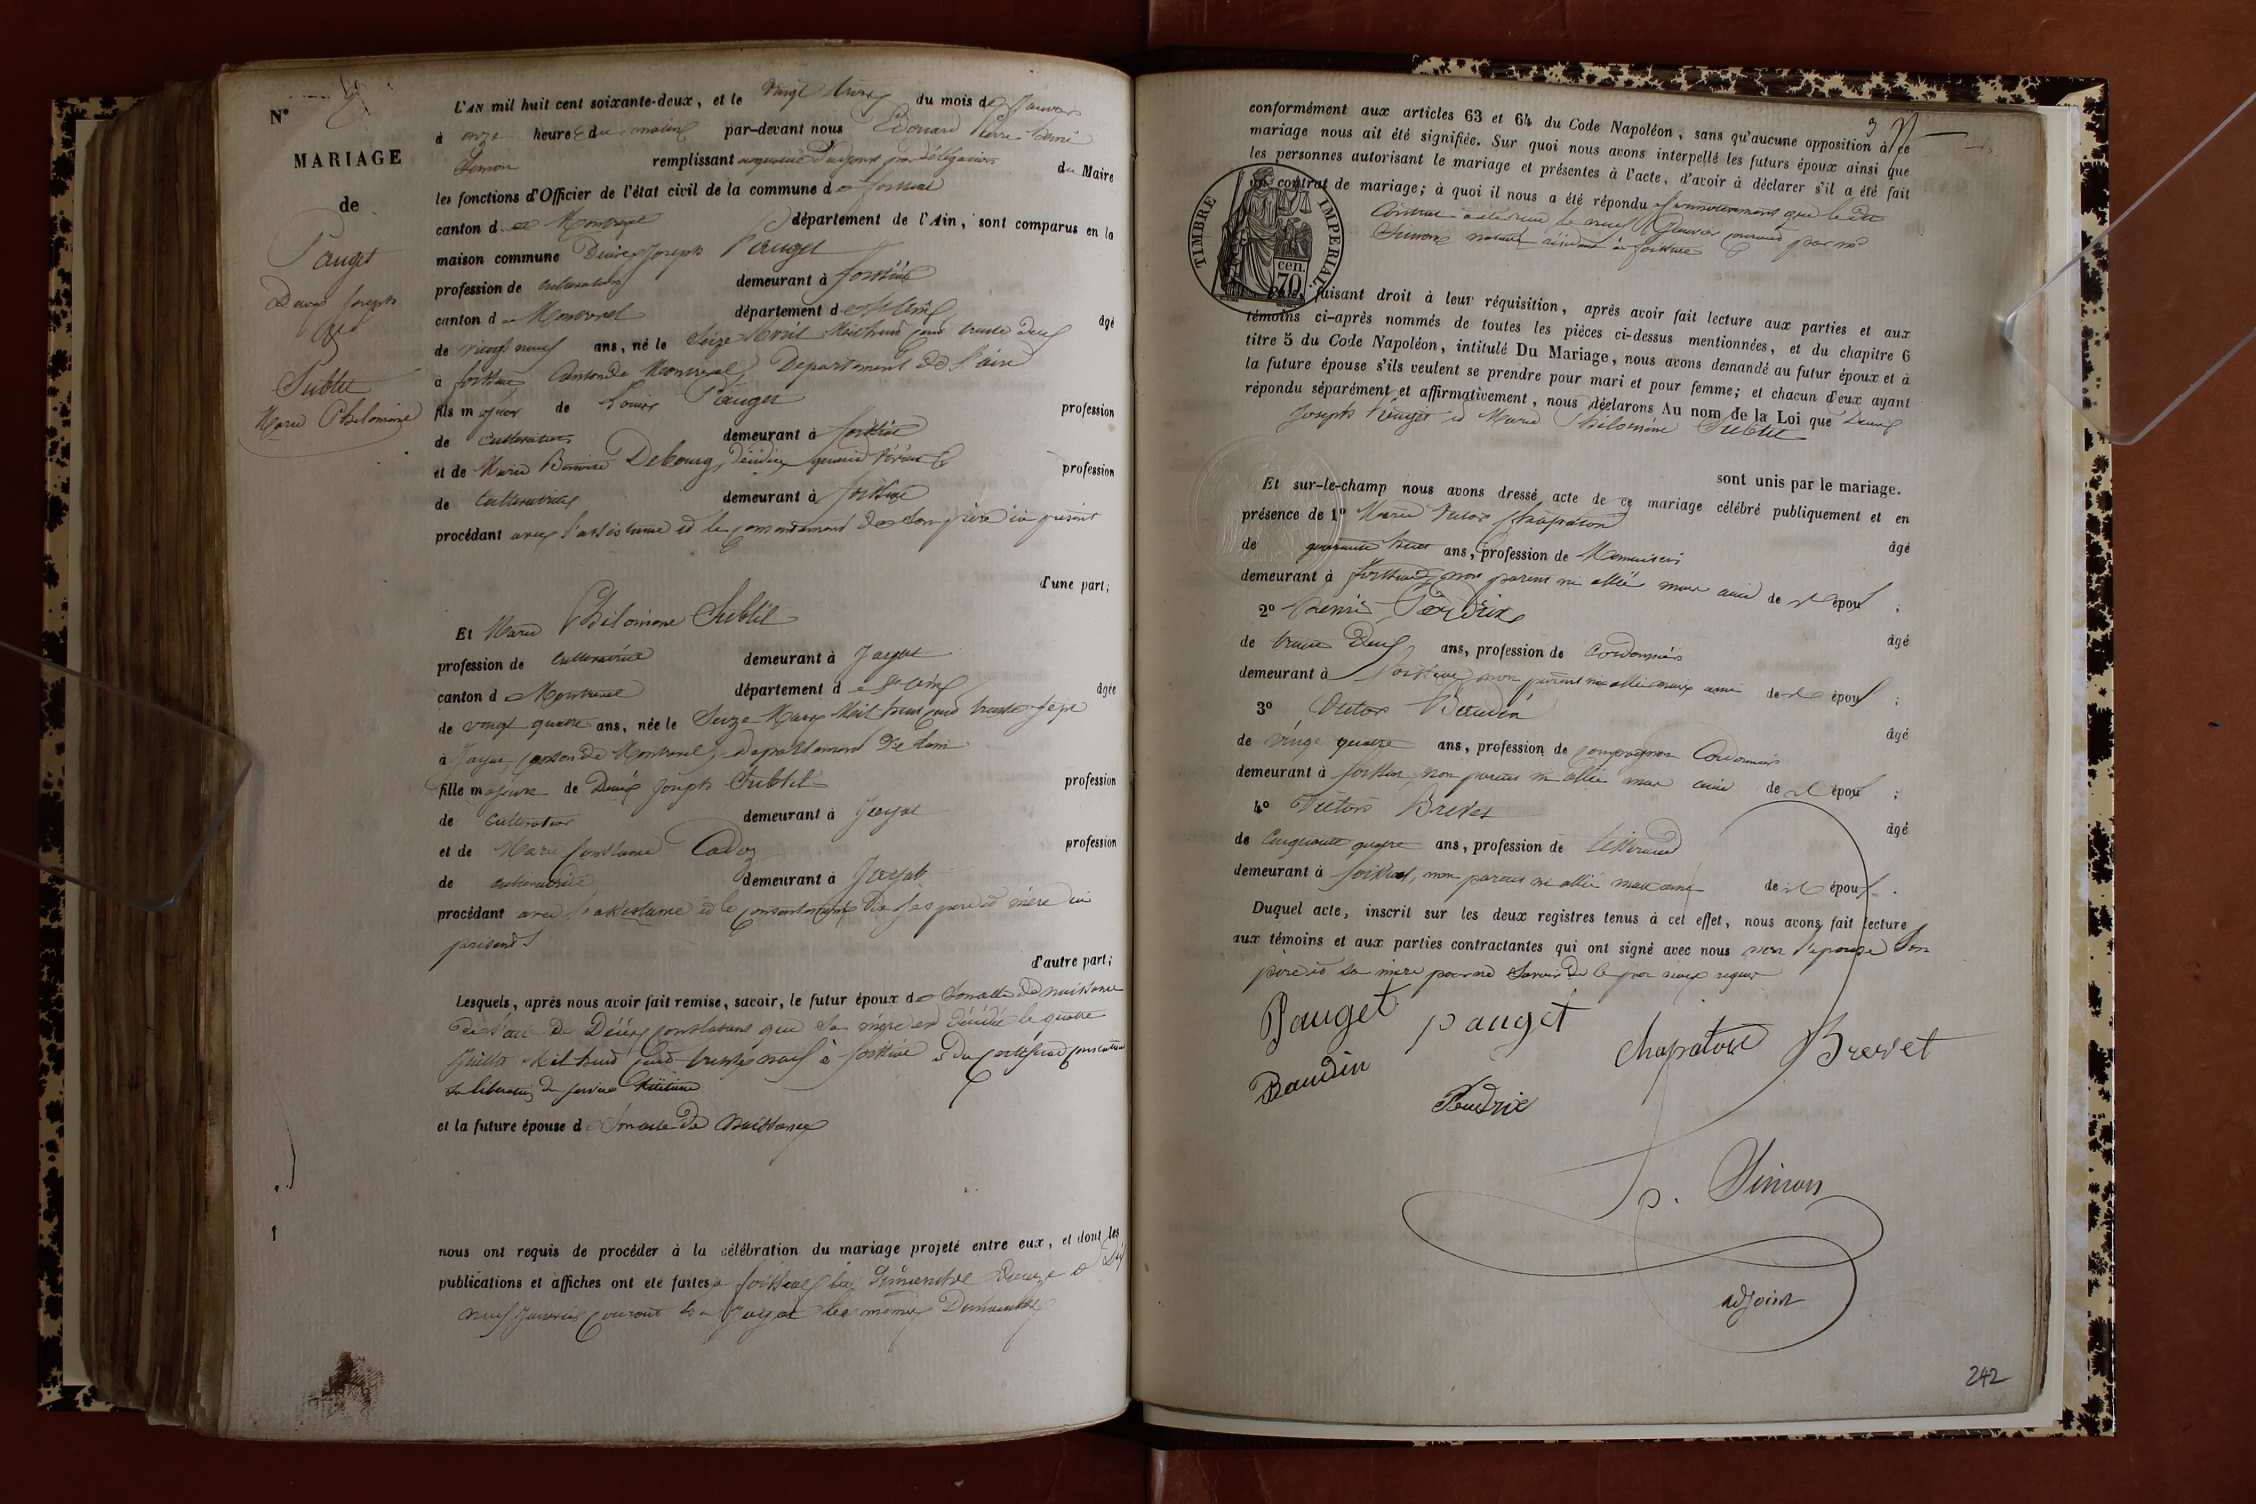 N°
MARIAGE
de
Pauget
Denis Joseph
et
Subtil
Marie Philomène
L'AN mil huit cent soixante-deux, et le vingt du mois de Janvier
à onze heures du matin par-devant nous Edouard Pierre René
Simon remplissant adjoint par délégation du Maire
les fonctions d'Officier de l'état civil de la commune de foissiat
canton de Montrevel département de l'Ain, sont comparus en la
maison commune Denis Joseph Pauget
profession de cultivateur demeurant à foissiat
canton de Montrevel département de l'ain âgé
de vingt neuf ans, né le Seize Avril Mil huit cent trente deux
à foissiat Canton de Montrevel Département de l'ain
fils majeur de Pauget profession
de cultivateur demeurant à foissiat
et de Marie Debourg, décédée profession
de cultivatrice demeurant à foissiat
procédant avec l'assistance et le consentement de son père ici présent
d'une part;
Et Marie Philomène Subtil
profession de cultivatrice demeurant à Jayat
canton de Montrevel département de l'ain âgée
de vingt quatre ans, née le Seize Mars Mil huit cent trente sept
à Jayat canton de Montrevel, département de l'ain
fille majeure de Denis Joseph Subtil profession
de cultivateur demeurant à Jayat
et de Marie Constance Cadoz profession
de cultivatrice demeurant à Jayat
procédant avec l'assistance et le consentement de ses père et mère ici
présents
d'autre part;
Lesquels, après nous avoir fait remise, savoir, le futur époux de son acte de naissance
de l'acte de Décès constatant que sa mère est décédée le quatre
Juillet Mil huit cent trente neuf à foissiat & du certificat constatant
sa libération du service Militaire
et la future épouse de son acte de naissance
nous ont requis de procéder à la célébration du mariage projeté entre eux, et dont les
publications et affiches ont été faites à foissiat les Dimanches douze & dix
neuf Janvier courant & à Jayat les mêmes Dimanches
conformément aux articles 63 et 64 du Code Napoléon, sans qu'aucune opposition à ce
mariage nous ait été signifiée. Sur quoi nous avons interpellé les futurs époux ainsi que
les personnes autorisant le mariage et présentes à l'acte, d'avoir à déclarer s'il a été fait
un contrat de mariage; à quoi il nous a été répondu affirmativement que le dit
Contrat a été reçu le neuf Janvier courant par me
Simon notaire résidant à foissiat
TIMBRE IMPERIAL
70 cen.
Puis, faisant droit à leur réquisition, après avoir fait lecture aux parties et aux
témoins ci-après nommés de toutes les pièces ci-dessus mentionnées, et du chapitre 6
titre 5 du Code Napoléon, intitulé Du Mariage, nous avons demandé au futur époux et à
la future épouse s'ils veulent se prendre pour mari et pour femme; et chacun d'eux ayant
répondu séparément et affirmativement, nous déclarons Au nom de la Loi que Denis
Joseph Pauget et Marie Philomène Subtil
sont unis par le mariage.
Et sur-le-champ nous avons dressé acte de ce mariage célébré publiquement et en
présence de 1° Marie Victor Chapatou âgé
de quarante ans, profession de Menuisier
demeurant à foissiat, non parent ni allié mais ami de l'époux;
2° Perdrix âgé
de trente Deux ans, profession de Cordonnier
demeurant à foissiat non parent ni allié mais ami de l'époux;
3° Victor Baudin âgé
de vingt quatre ans, profession de compagnon Cordonnier
demeurant à foissiat non parent ni allié mais ami de l'époux;
4° Victor Brevet âgé
de Cinquante quatre ans, profession de tisserand
demeurant à foissiat, non parent ni allié mais ami de l'époux.
Duquel acte, inscrit sur les deux registres tenus à cet effet, nous avons fait lecture
aux témoins et aux parties contractantes qui ont signé avec nous non l'épouse Son
père et sa mère pour ne savoir de ce par nous requis
Pauget pauget chapatou Brevet
Baudin Perdrix
p. Simon
adjoint
242